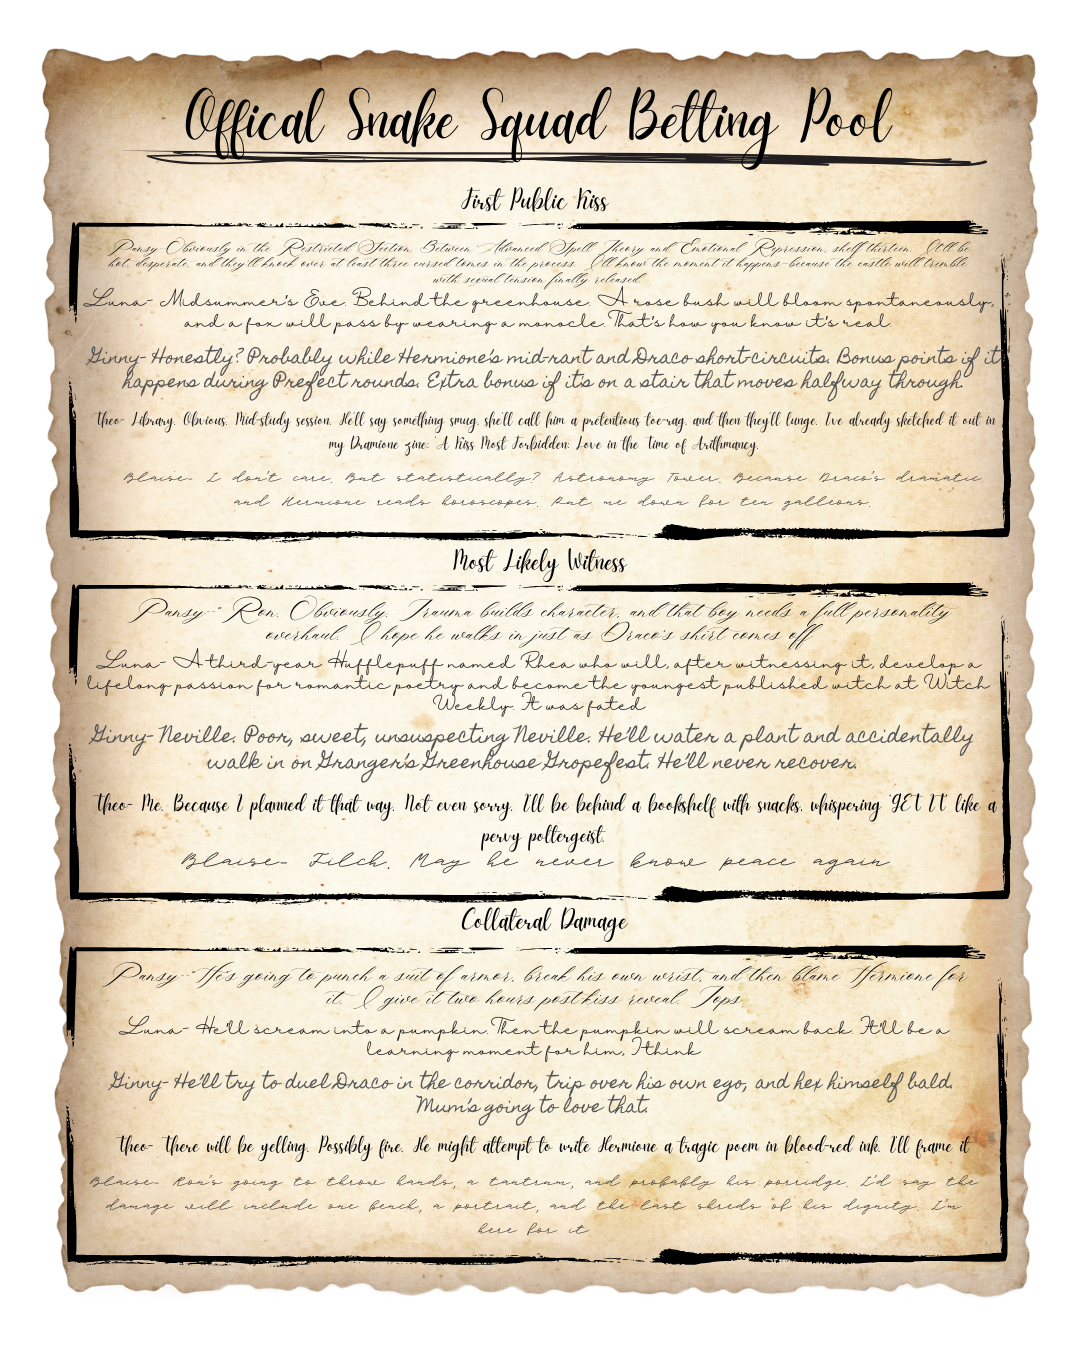 Offical Snake Squad Betting Pool
First Public Kiss
Pansy- Obviously in the Restricted Section. Between Advanced Spell Theory and Emotional Repression, shelf thirteen. It'll be
hot, desperate, and they'll knock over at least three cursed tomes in the process. I'll know the moment it happens-because the castle will tremble
with sexual tension finally released.
Luna- Midsummer's Eve. Behind the greenhouse. A rose bush will bloom spontaneously,
and a fox will pass by wearing a monocle. That's how you know it's real.
Ginny- Honestly? Probably while Hermione's mid-rant and Draco short-circuits. Bonus points if it
happens during Prefect rounds. Extra bonus if it's on a stair that moves halfway through.
Theo- Library. Obvious. Mid-study session. He'll say something smug, she'll call him a pretentious toe-rag, and then they'll lunge. I've already sketched it out in
my Dramione zine: 'A Kiss Most Forbidden: Love in the Time of Arithmancy.
Blaise- I don't care. But statistically? Astronomy Tower. Because Draco's dramatic
and Hermione reads horoscopes. Put me down for ten galleons.
Most Likely Witness
Pansy- Ron. Obviously. Trauma builds character, and that boy needs a full personality
overhaul. I hope he walks in just as Draco's shirt comes off
Luna- A third-year Hufflepuff named Rhea who will, after witnessing it, develop a
lifelong passion for romantic poetry and become the youngest published witch at Witch
Weekly. It was fated
Ginny- Neville. Poor, sweet, unsuspecting Neville. He'll water a plant and accidentally
walk in on Granger's Greenhouse Gropefest. He'll never recover.
Theo- Me. Because I planned it that way. Not even sorry. I'll be behind a bookshelf with snacks, whispering 'GET IT' like a
pervy poltergeist.
Blaise- Filch. May he never know peace again
Collateral Damage
Pansy- He's going to punch a suit of armor, break his own wrist, and then blame Hermione for
it. I give it two hours post-kiss reveal. Tops
Luna- He'll scream into a pumpkin. Then the pumpkin will scream back. It'll be a
learning moment for him, I think
Ginny- He'll try to duel Draco in the corridor, trip over his own ego, and hex himself bald.
Mum's going to love that.
Theo- There will be yelling. Possibly fire. He might attempt to write Hermione a tragic poem in blood-red ink. I'll frame it
Blaise- Ron's going to throw hands, a tantrum, and probably his porridge. I'd say the
damage will include one bench, a portrait, and the last shreds of his dignity. I'm
here for it